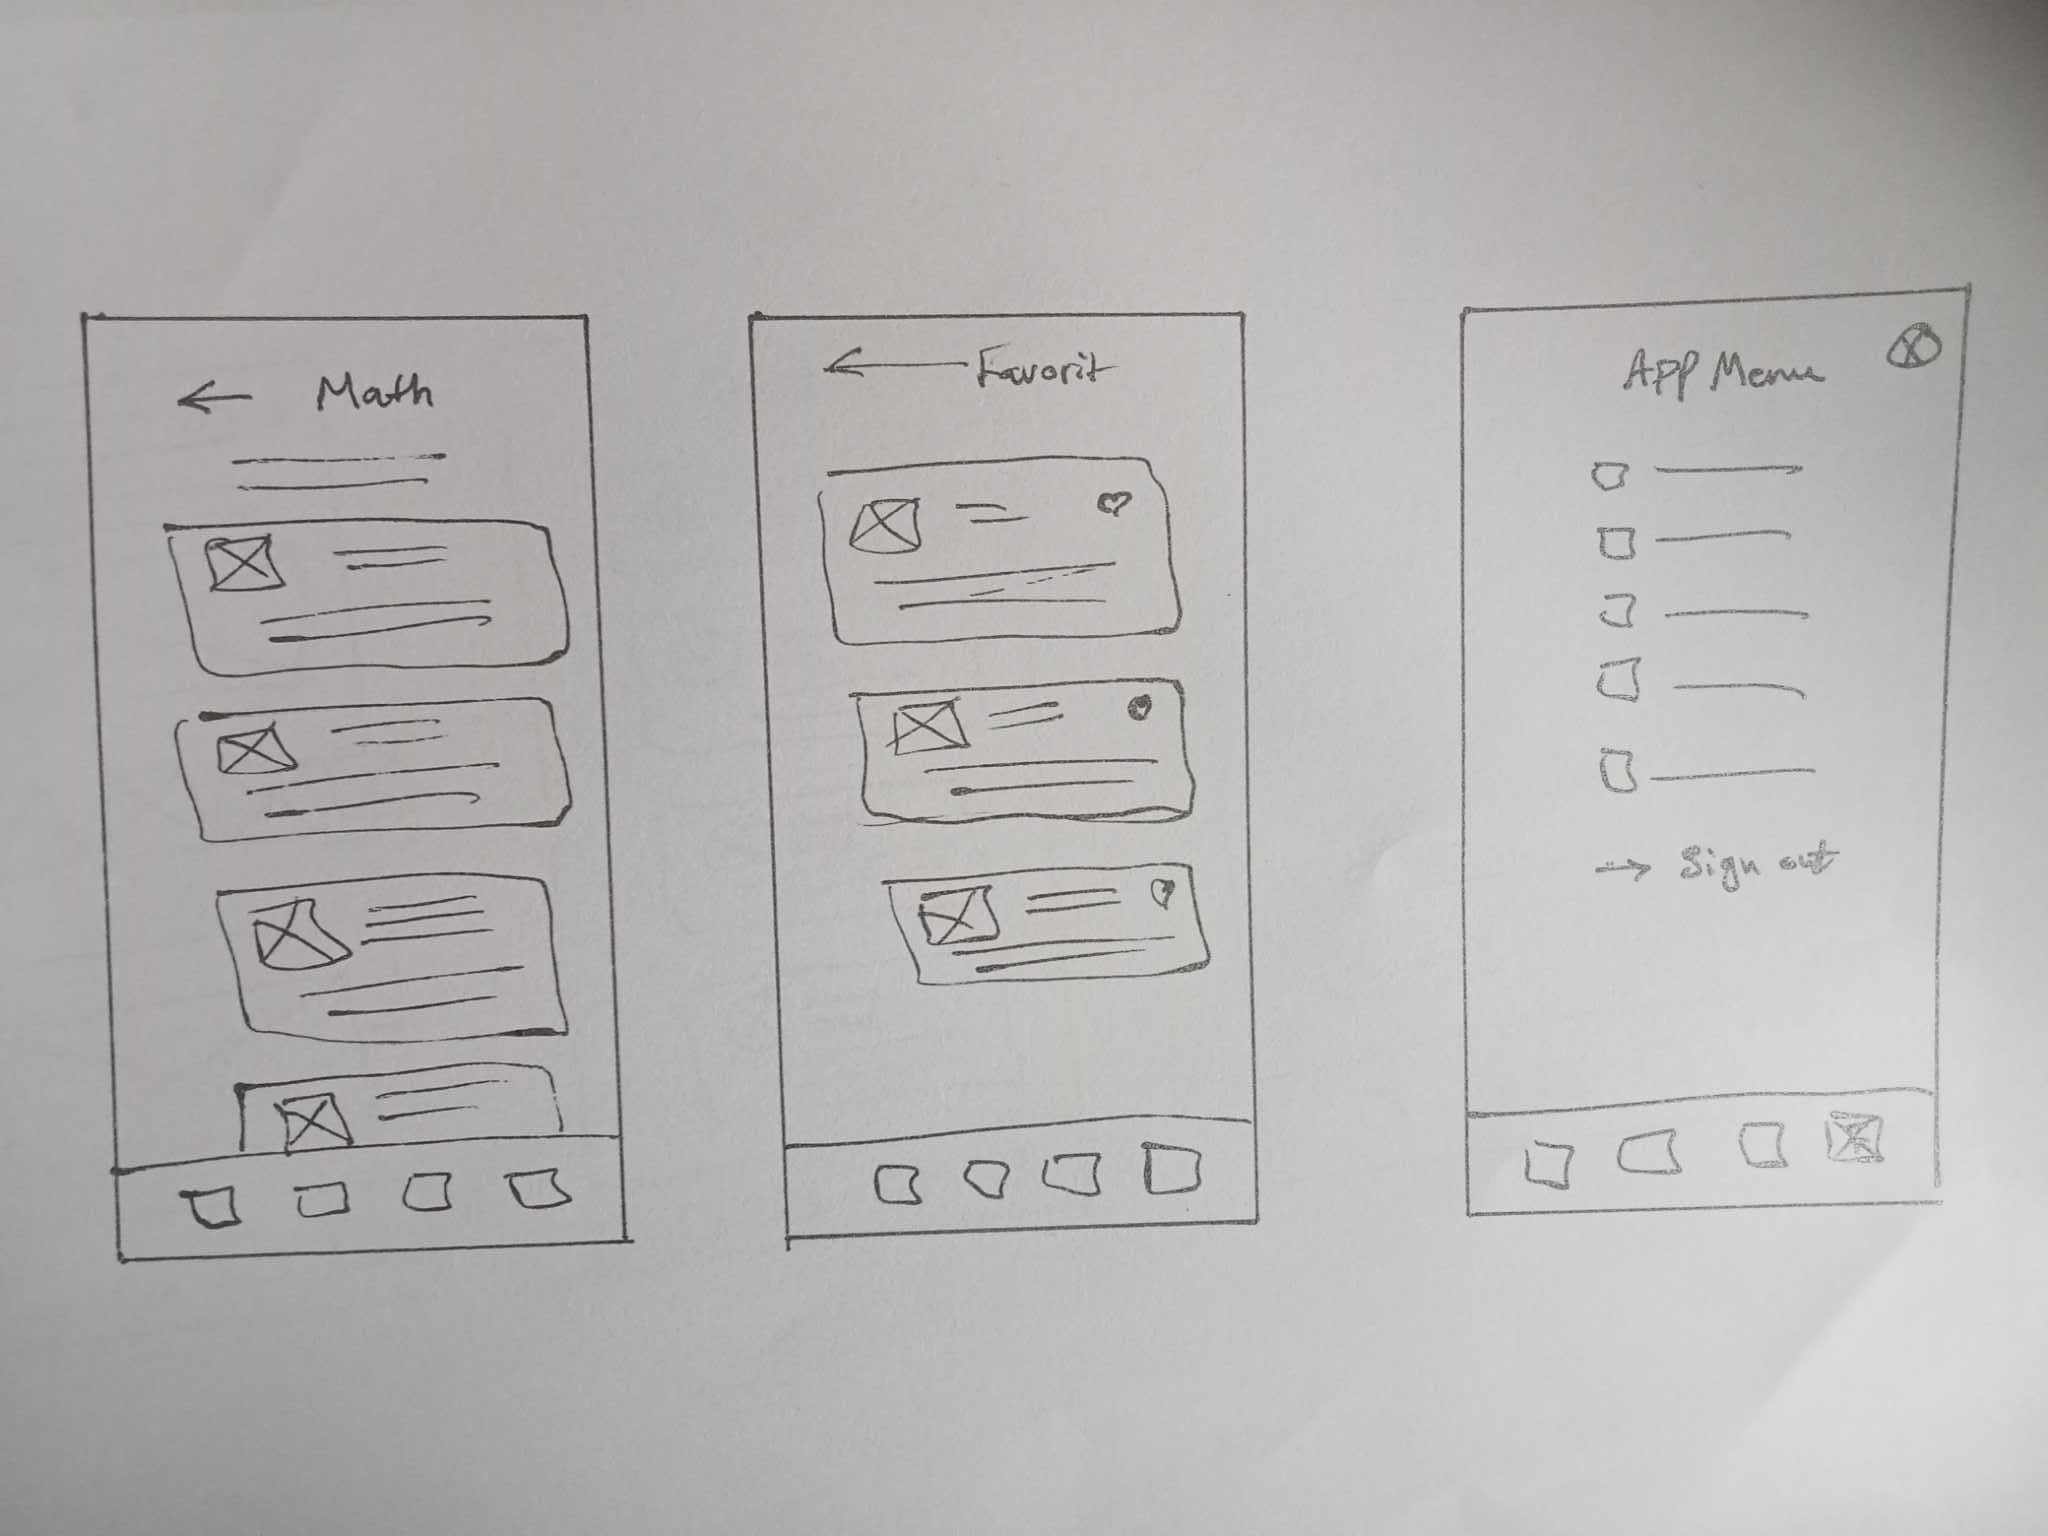 Math
Favorit
App Menu
Sign out